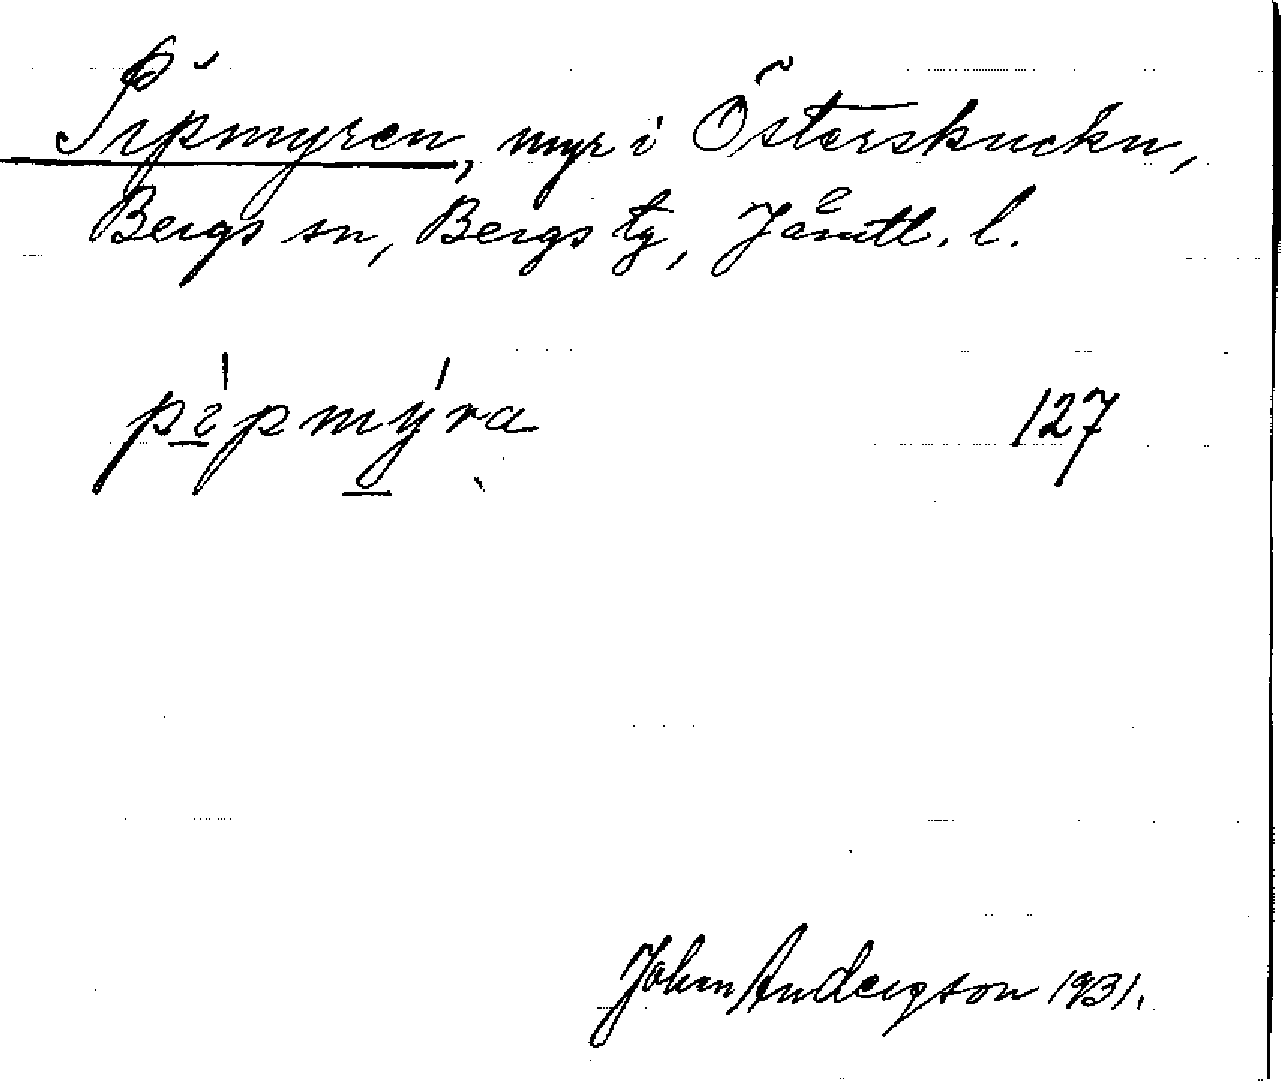 Pipmyren, myr i Österskuckn,
Bergs sn, Bergs tg, Jämtl. l.
pìpmýra 127
Johan Andersson 1931.